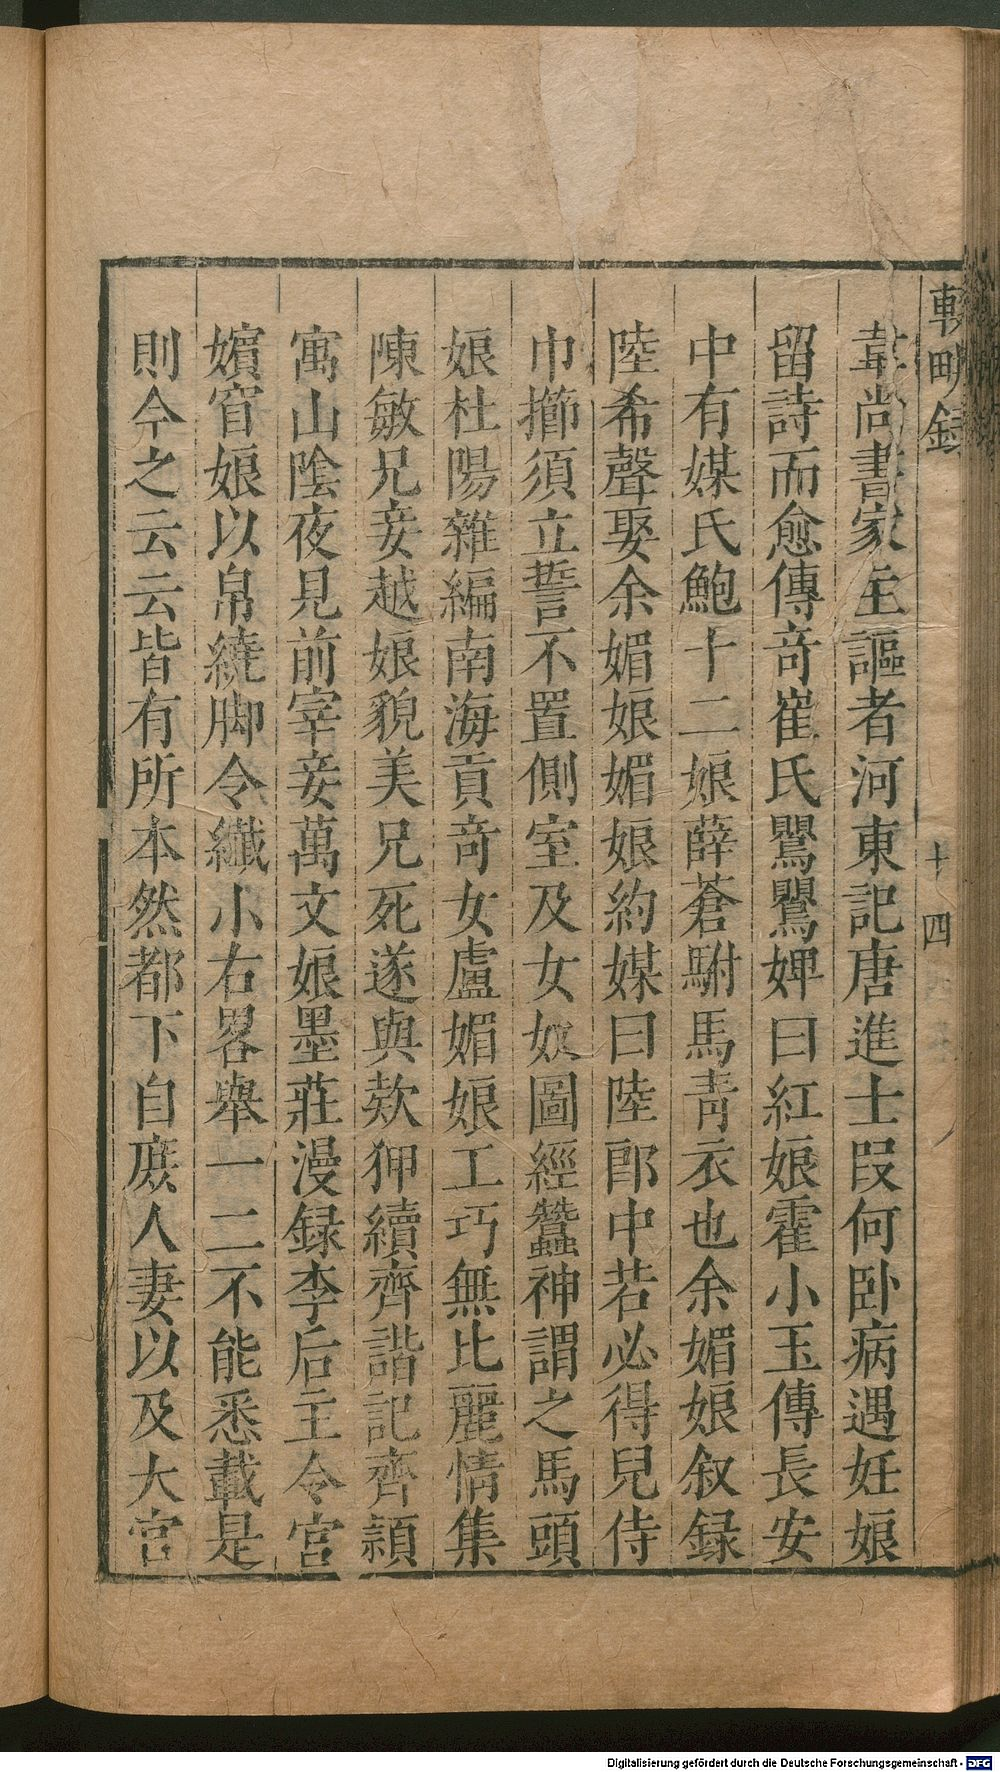 輟畊録
十四
韋尚書家主謳者河東記唐進士叚何卧病遇妊娘
留詩而愈傳竒崔氏鸎鸎婢曰紅娘霍小玉傳長安
中有媒氏鮑十二娘薛蒼駙馬靑衣也余媚娘叙録
陸希聲娶余媚娘媚娘約媒曰陸郎中若必得兒侍
巾擳須立誓不置側室及女奴圖經蠶神謂之馬頭
娘杜陽雜編南海貢竒女盧媚娘工巧無比麗情集
陳敏兄妾越娘貌美兄死遂與欵狎續齊諧記齊頴
寓山陰夜見前宰妾萬文娘墨莊漫録李后主令宮
嬪窅娘以帛繞脚令纎小右畧舉一二不能悉載是
則今之云云皆有所本然都下自庶人妻以及大官
Digitalisierung gefördert durch die Deutsche Forschungsgemeinschaft - DFG